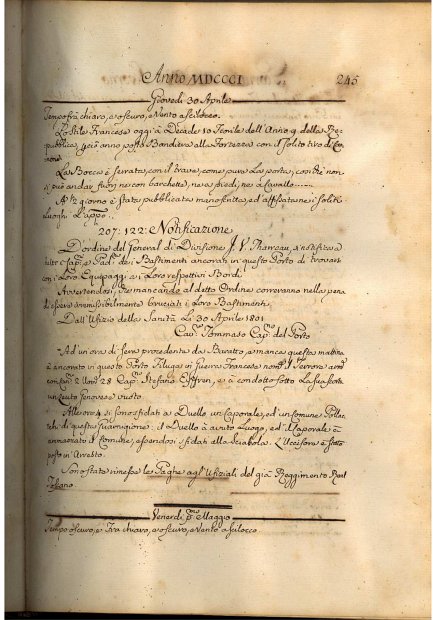 Anno MDCCCI 245
Giovedi 30 Aprile
Tempo frà chiaro, e oscuro, e Vento a Scilocco.
Lo Stile Francese oggi è Decade 10 Fiorile dell'Anno 9 della Re-
pubblica, e ciò anno posto Bandiera alla Fortezza con il solito tiro di Can
none
La Bocca è serrata, con il trave, come pure La porta, con che non
si può andar fuori, ne con barchette, ne a piedi, ne a Cavallo
A ½ giorno è stata pubblicata manoscritta, ed affissata nei soliti
luoghi L'appo
207: 122: Notificazione
D'ordine del General di Divisione J. V. Tharreau, si notifica a
tutti i Capi, e Pad. dei Bastimenti ancorati in questo Porto di trovarsi
con i Loro Equipaggi ai Loro respettivi Bordi
Avvertendosi, che mancando al detto Ordine correranno nella pena
di essere irremissibilmente bruciati i Loro Bastimenti
Dall'Ufizio della Sanità Li 30 Aprile 1801
Cap. Tommaso Cap. del Porto
Ad un'ora di sera procedente da Baratto, e manca questa mattina
è ancorato in questo Porto Filuga in Guerra Francese nom. il Terrore arm.
con 2 Uom. 28 Cap. Stefano Effren, e à condotto sotto La sua scorta
un Leuto Genovese vuoto
Alle ore 4 si sono sfidati a Duello un Caporale, ed un comune Pollac-
chi di questa Guarnigione, il Duello à avuto Luogo, ed il Caporale à
ammazzato il Comune, essendosi sfidati alla Sciabola. L'Uccisore è sotto-
posto in Arresto.
Sono state rimesse le Paghe agl'Ufiziali del già Reggimento Real
Toscano.
Venerdi p.mo Maggio
Tempo oscuro, e Frà chiaro, e oscuro, e Vento a Scilocco